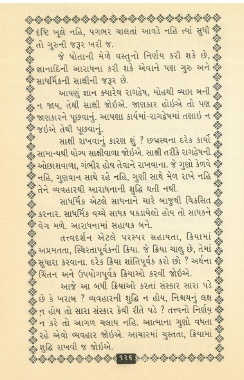 દૃષ્ટિ ખૂલે નહિ, પગભર ચાલતાં આવડે નહિ ત્યાં સુધી
તો ગુરુની જરૂર ખરી જ.
જે પોતાની મેળે વસ્તુનો નિર્ણય કરી શકે છે,
જ્ઞાનાદિની આરાધના કરી શકે એવાને પણ ગુરુ અને
સાધર્મિકની સાક્ષીની જરૂર છે.
આપણું જ્ઞાન ક્યારેય રાગદ્વેષ, મોહથી વ્યાપ્ત બની
ન જાય, તેથી સાક્ષી જોઈએ. જાણકાર હોઈએ તો પણ
જાણકારને પૂછવાનું. આપણા કાર્યમાં-રાગદ્વેષમાં તણાઈ ન
જઈએ તેથી પૂછવાનું.
સાક્ષી રાખવાનું કારણ શું ? છદ્મસ્થના દરેક કાર્યો
સામાન્યથી યોગ્ય સાક્ષીવાળા જોઈએ. સાક્ષી તરીકે રાગદ્વેષની
ઓછાશવાળા, ગંભીર હોય તેવાને રાખવાના. જે ગુણો કેળવે
નહિ, ગુણવાન સાથે રહે નહિ, ગુણી સાથે મેળ રાખે નહિ
તેને વ્યવહારથી આરાધનાની શુદ્ધિ થતી નથી.
સાધર્મિક એટલે સાધનાને મારે બાજુથી વિકસિત
કરનાર. સાધર્મિક વચ્ચે સાધક પકડાયેલો હોય તો સાધકને
વેગ મળે. આરાધનામાં સહાયક બને.
તત્ત્વદર્શન એટલે પરસ્પર સહાયતા, ક્રિયામાં
અપ્રમત્તતા, સ્થિરતાપૂર્વકની ક્રિયા. જે ક્રિયા ચાલુ છે, તેમાં
સુધારા કરવાના. દરેક ક્રિયા શાંતિપૂર્વક કરો છો ? અર્થના
ચિંતન અને ઉપયોગપૂર્વક ક્રિયાઓ કરવી જોઈએ.
આજે આ બધી ક્રિયાઓ કરતાં સંસ્કાર સારા પડે
છે કે ખરાબ ? વ્યવહારની શુદ્ધિ ન હોય, નિશ્ચયનું લક્ષ
ન હોય તો સારા સંસ્કાર કેવી રીતે પડે ? તત્ત્વનો નિર્ણય
ન કરે તો આગળ ચલાય નહિ. આત્માના ગુણો વધતા
રહે એવો વ્યવહાર જોઈએ. આચારમાં ચુસ્તતા, ક્રિયામાં
શુદ્ધિ રાખવી જ જોઈએ.
૧૨૬